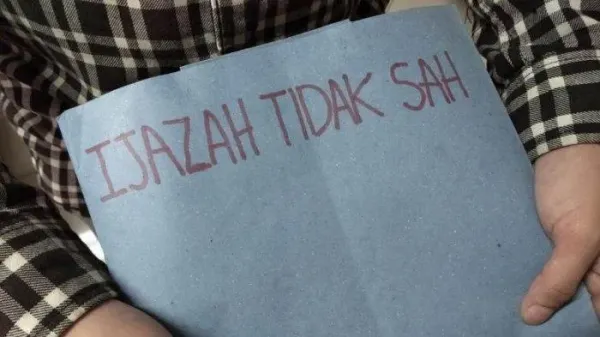 IJAZAH TIDAK SAH